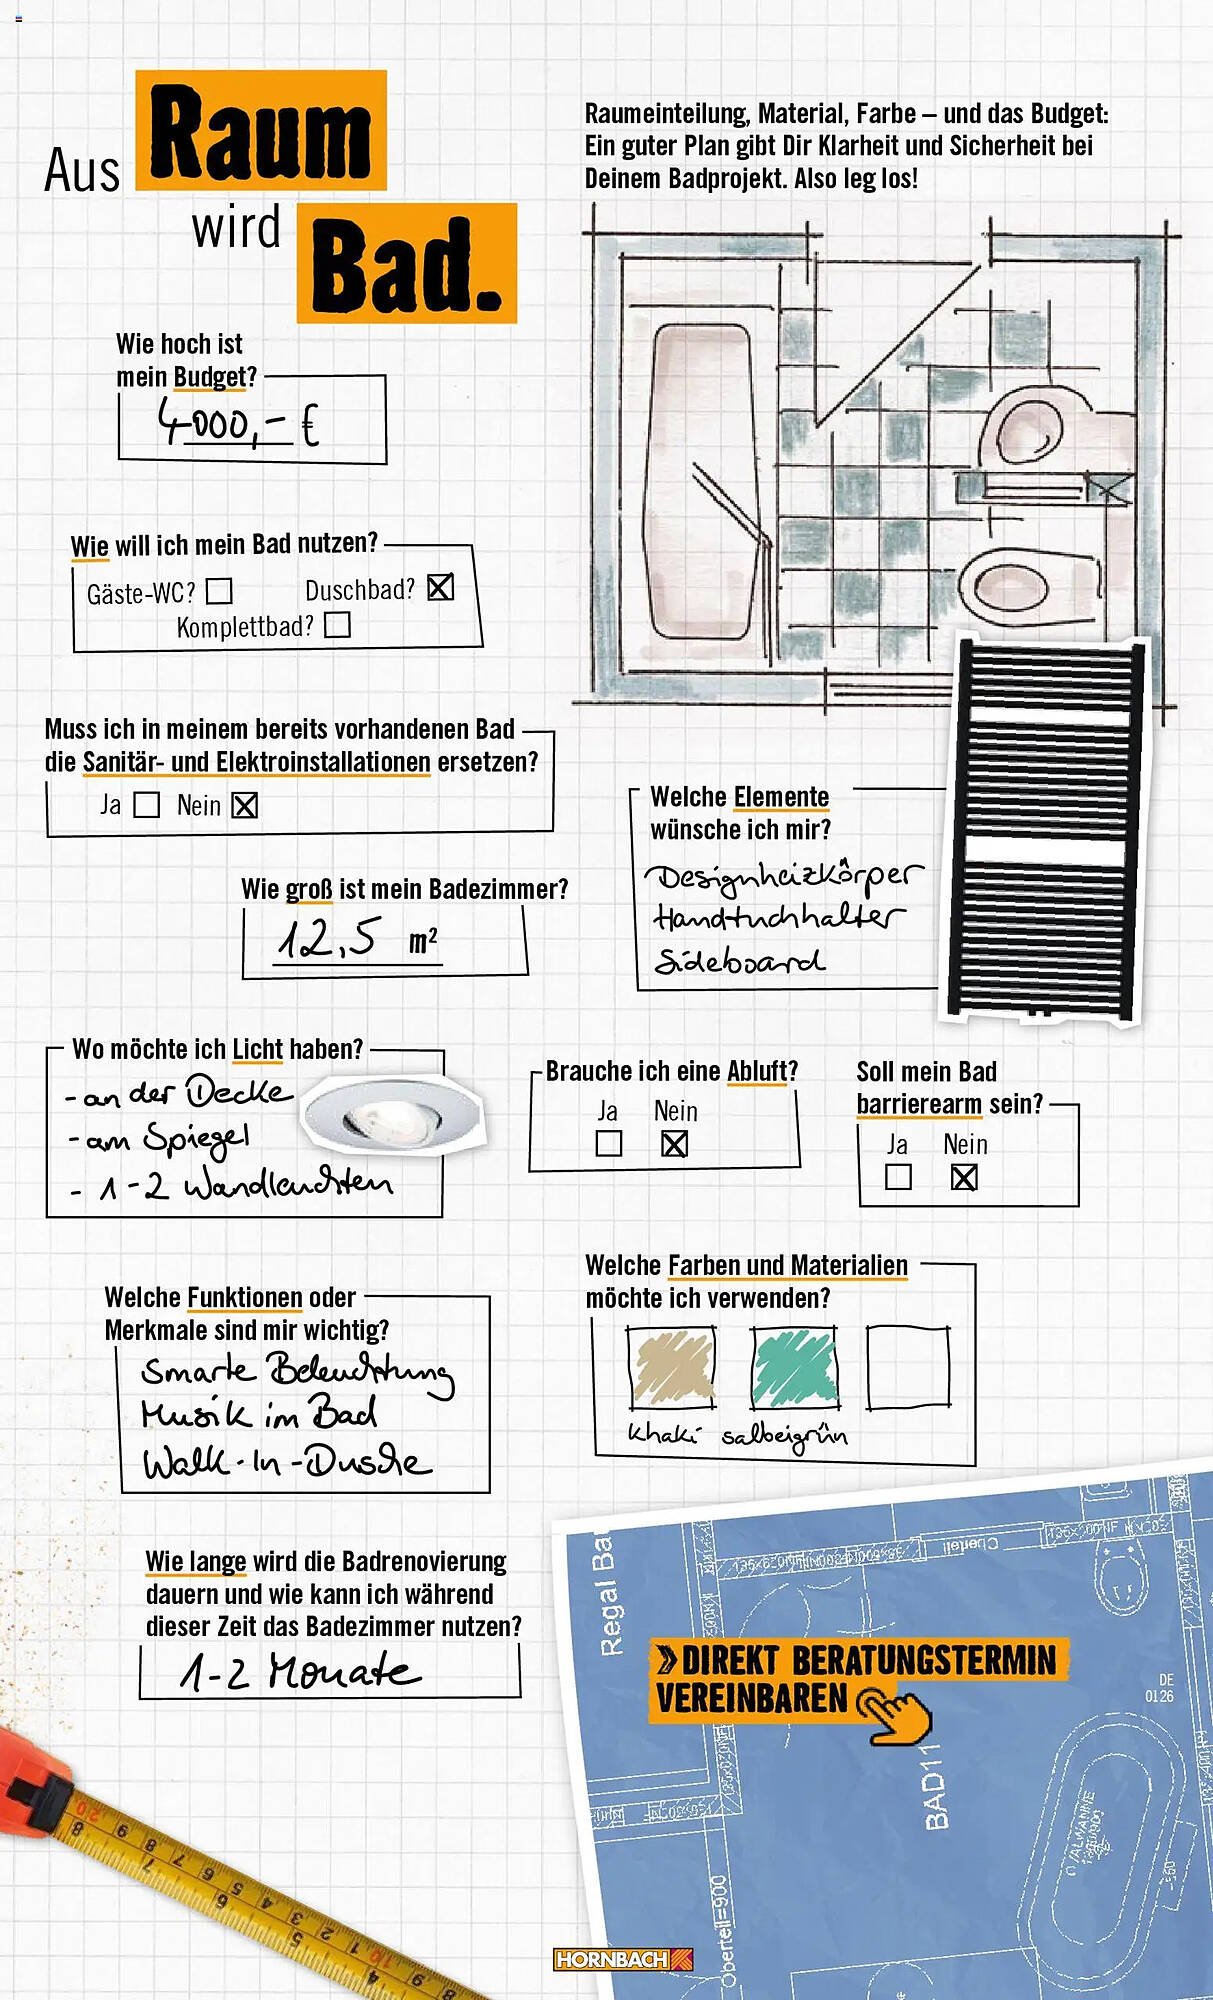 Aus Raum
wird Bad.
Raumeinteilung, Material, Farbe – und das Budget:
Ein guter Plan gibt Dir Klarheit und Sicherheit bei
Deinem Badprojekt. Also leg los!
Wie hoch ist
mein Budget?
4000,- €
Wie will ich mein Bad nutzen?
Gäste-WC? Duschbad?
Komplettbad?
Muss ich in meinem bereits vorhandenen Bad
die Sanitär- und Elektroinstallationen ersetzen?
Ja Nein
Wie groß ist mein Badezimmer?
12,5 m²
Welche Elemente
wünsche ich mir?
Designheizkörper
Handtuchhalter
Sideboard
Wo möchte ich Licht haben?
- an der Decke
- am Spiegel
- 1-2 Wandleuchten
Brauche ich eine Abluft?
Ja Nein
Soll mein Bad
barrierearm sein?
Ja Nein
Welche Funktionen oder
Merkmale sind mir wichtig?
Smarte Beleuchtung
Musik im Bad
Walk-In-Dusche
Welche Farben und Materialien
möchte ich verwenden?
khaki salbeigrün
Wie lange wird die Badrenovierung
dauern und wie kann ich während
dieser Zeit das Badezimmer nutzen?
1-2 Monate
Regal
» DIREKT BERATUNGSTERMIN
VEREINBAREN
DE
0126
BAD11
OVALWANNE
Oberteil=900
HORNBACH